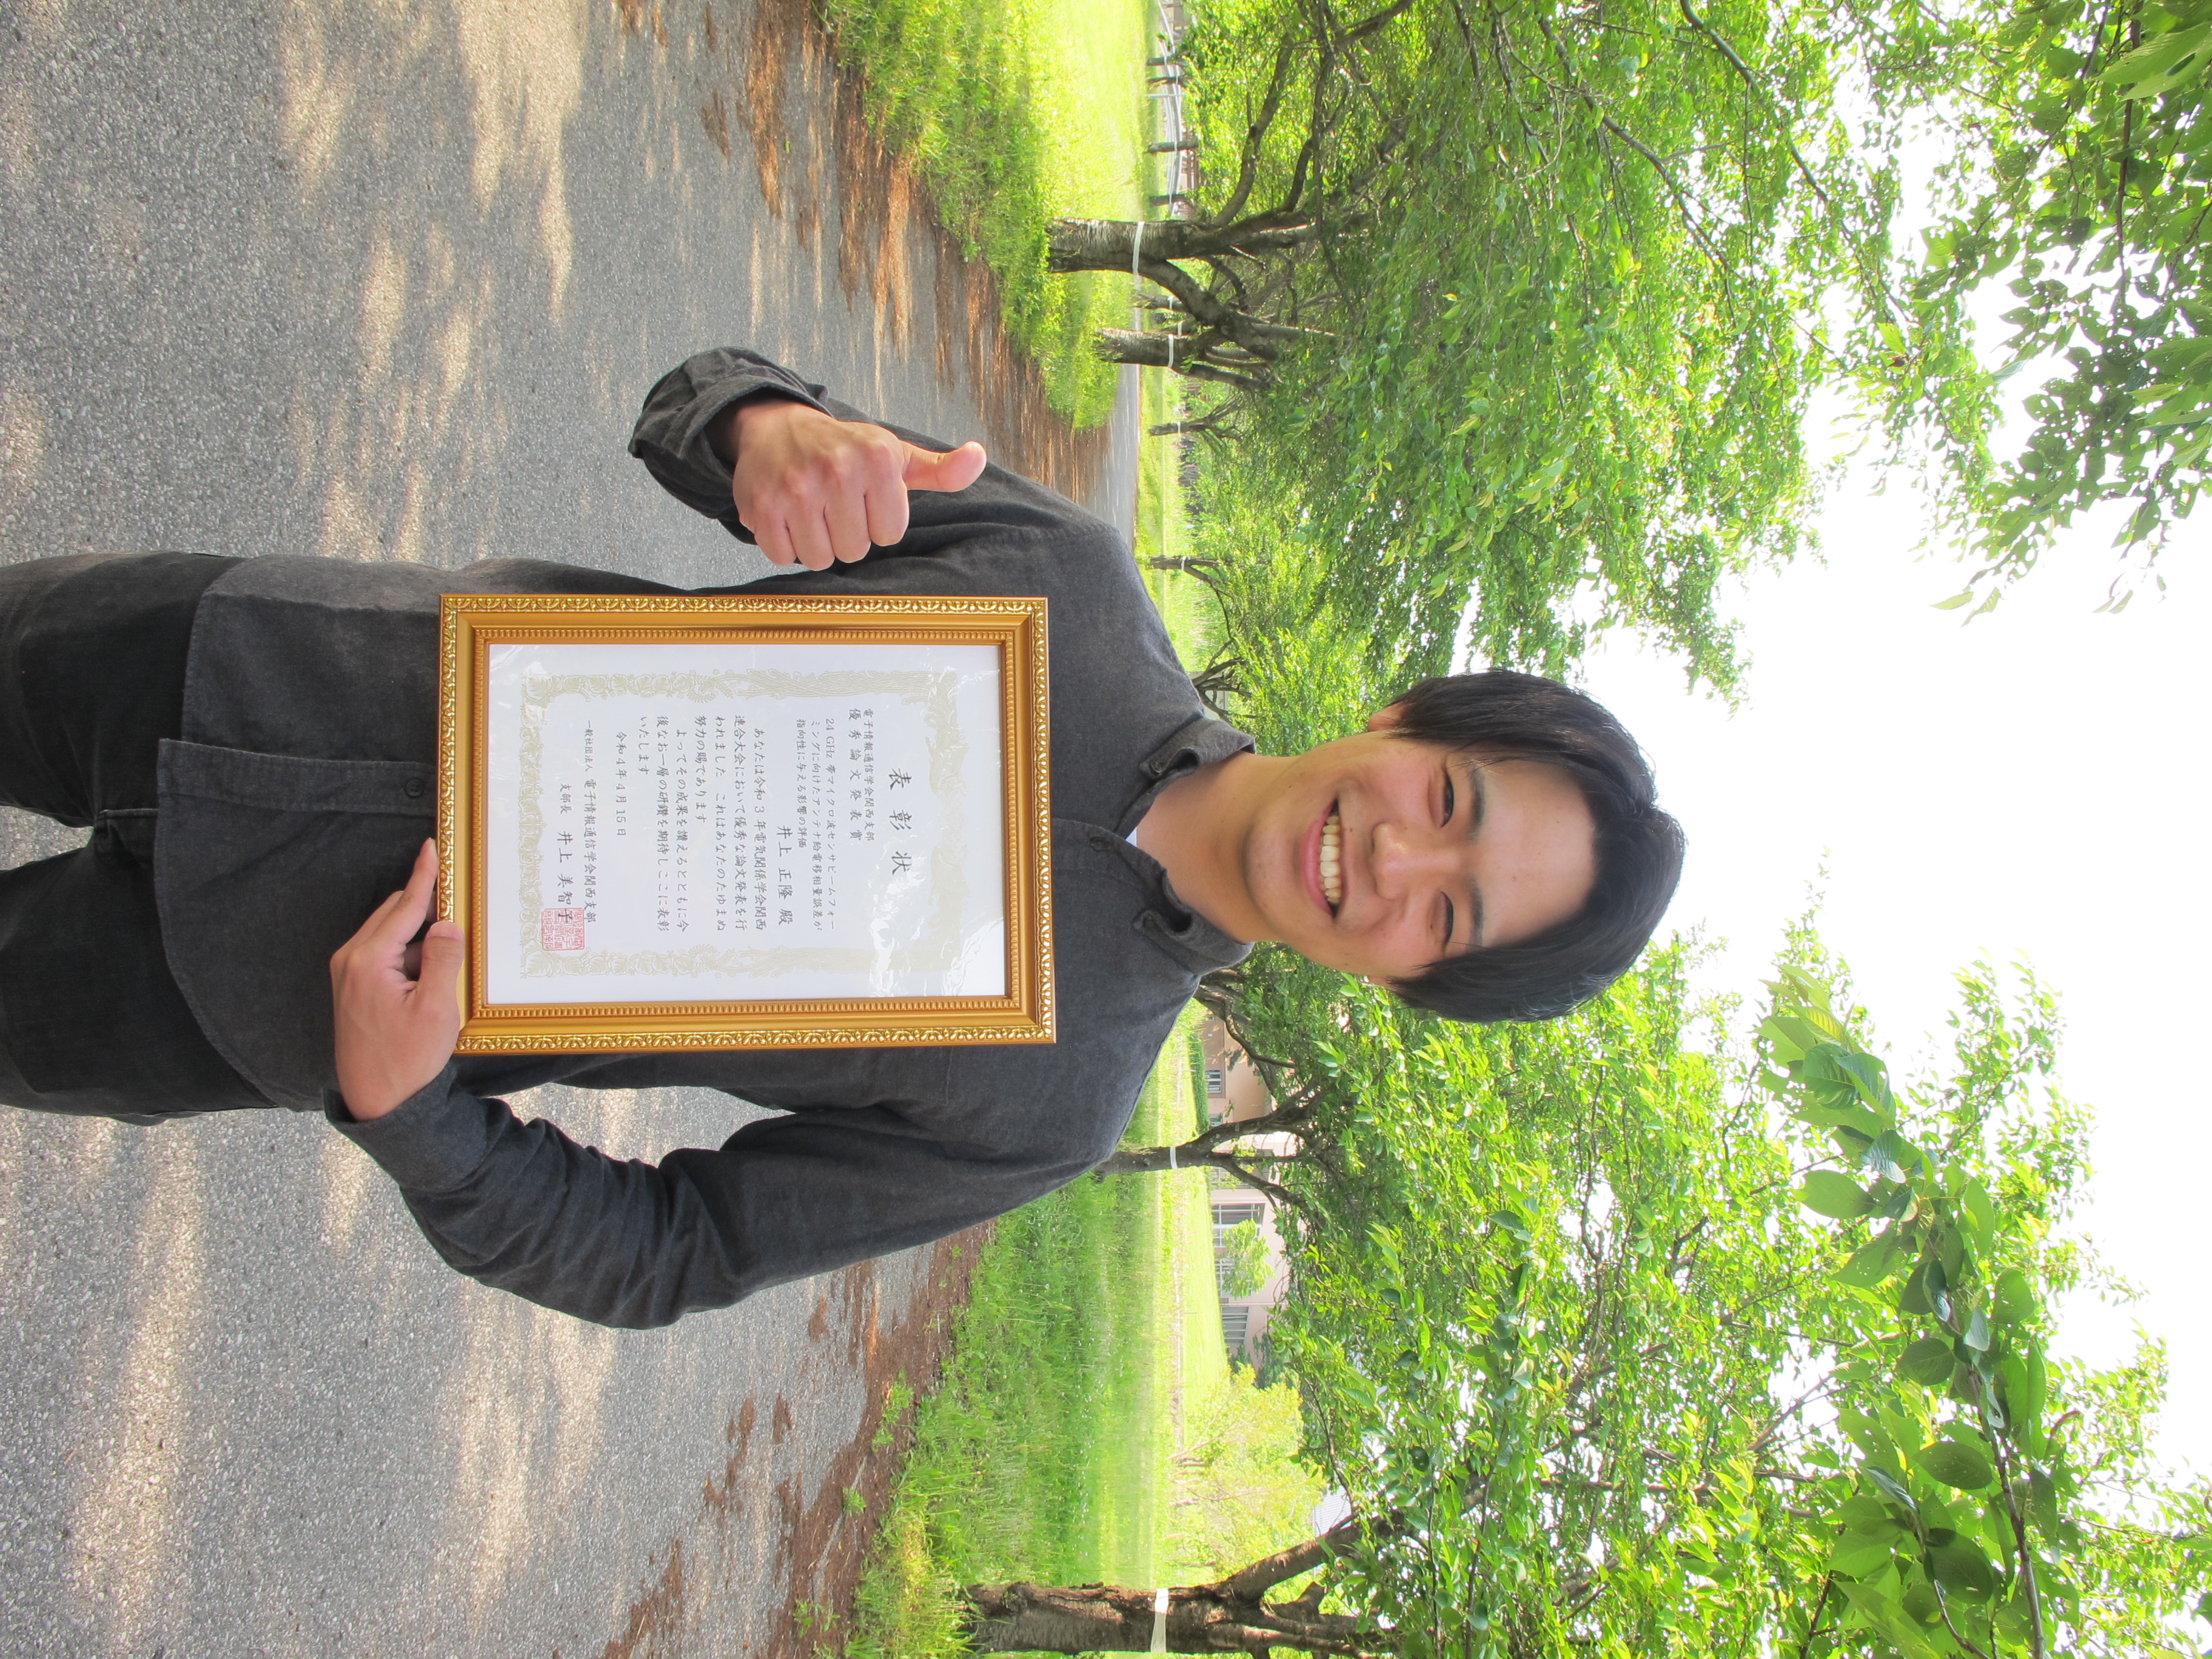 表彰状
電子情報通信学会関西支部
優秀論文発表賞
24 GHz 帯マイクロ波センサビームフォー
ミングに向けたアンテナ給電移相量誤差が
指向性に与える影響の評価
井上 正隆 殿
あなたは令和3年電気関係学会関西
連合大会において優秀な論文発表を行
われました これはあなたのたゆまぬ
努力の賜であります
よってその成果を讃えるとともに今
後なお一層の研鑽を期待しここに表彰
いたします
令和4年4月15日
一般社団法人 電子情報通信学会関西支部
支部長 井上 美智子